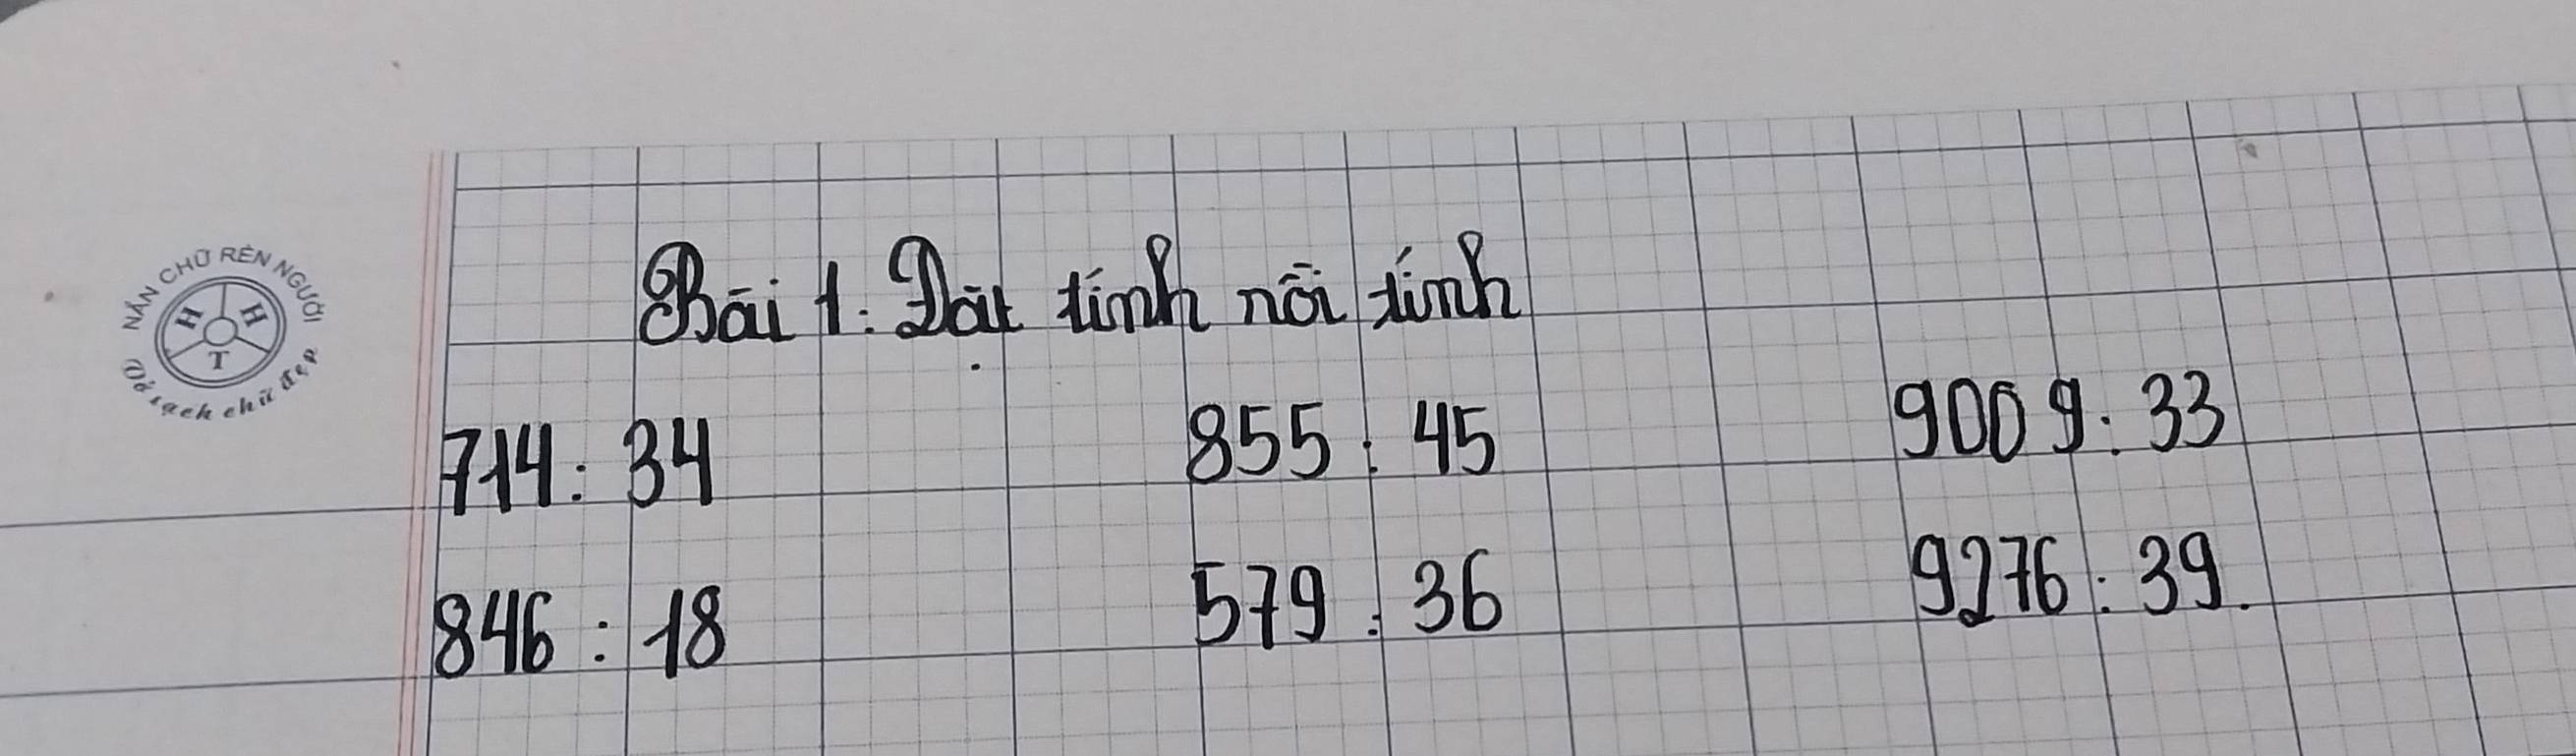 NẮN CHỮ RÈN NGƯỜI
H H
T
Vở sạch chữ đẹp
Bài 1: Đặt tính rồi tính
714 : 34 855 : 45 9009 : 33
846 : 18 579 : 36 9276 : 39.